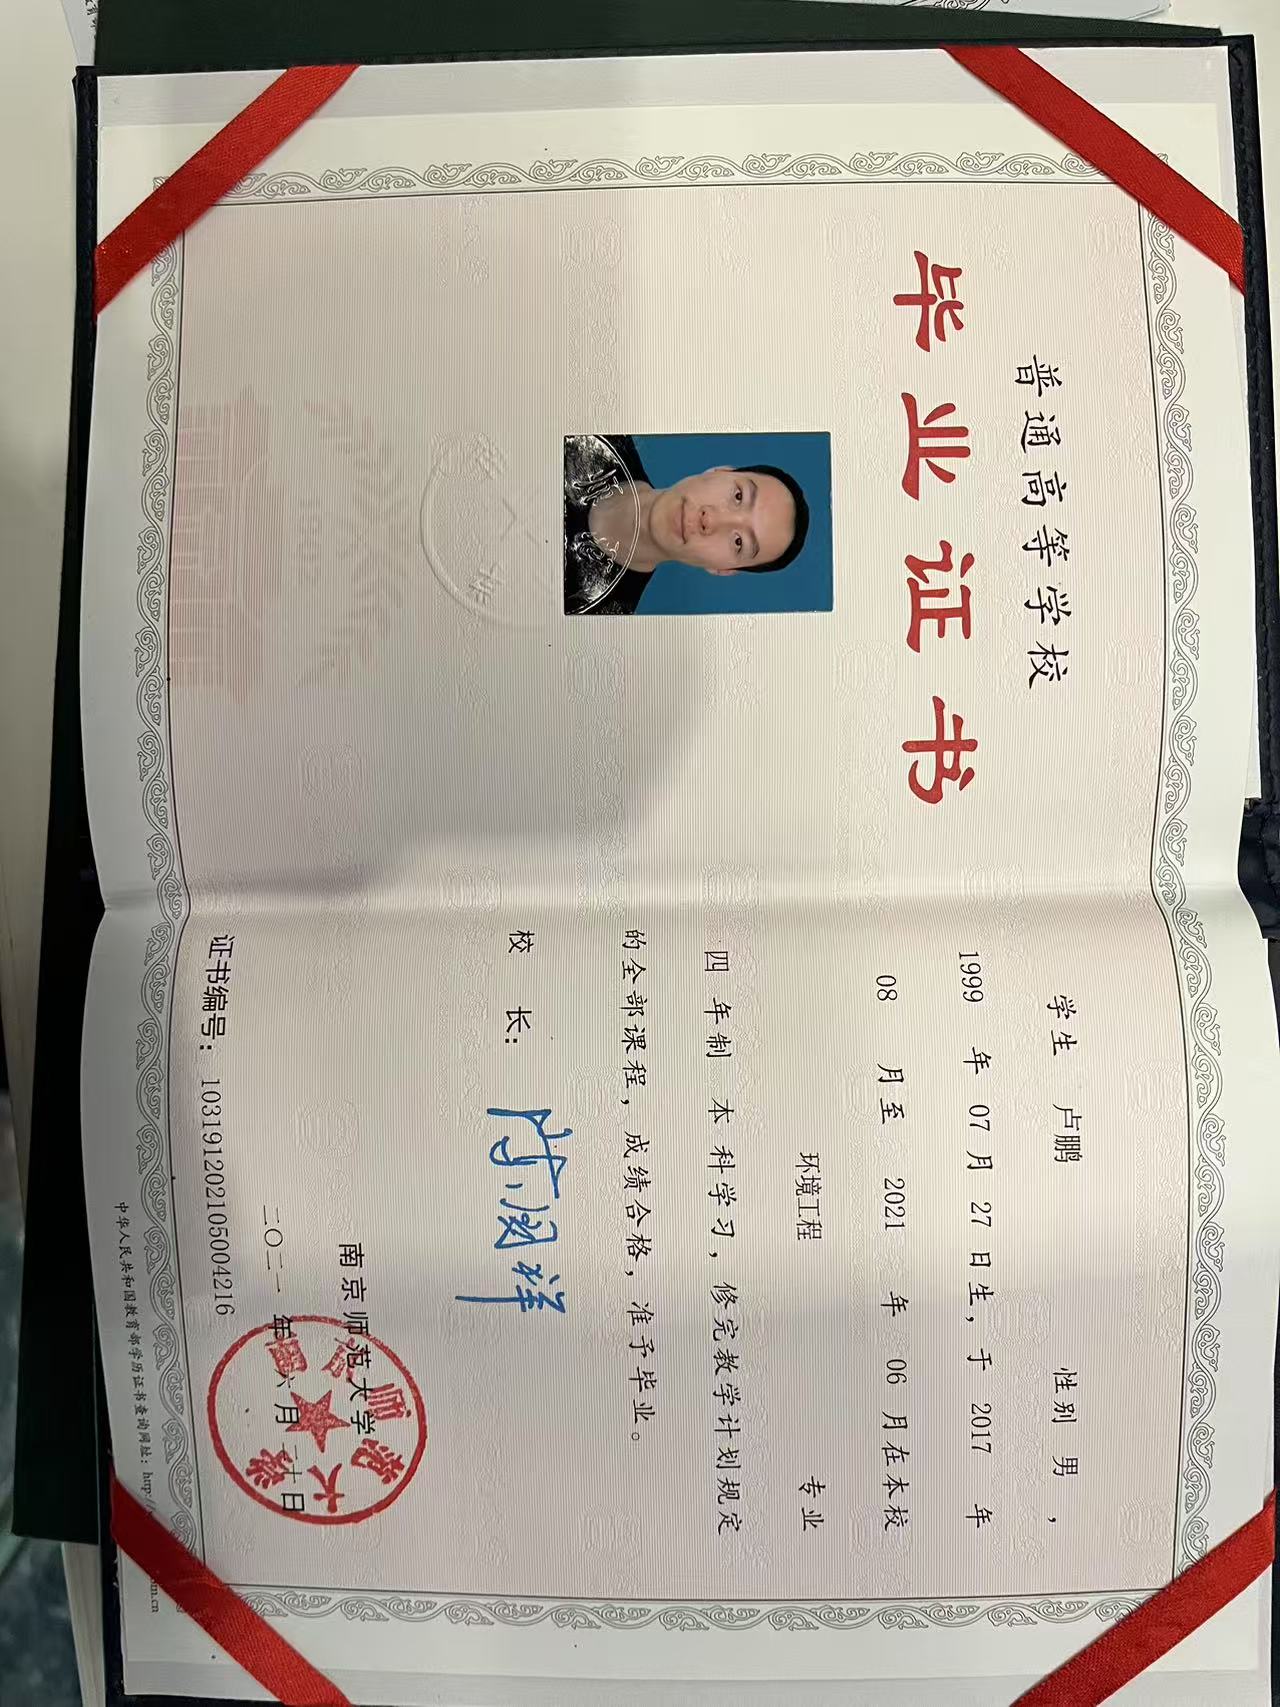 普通高等学校
毕业证书
学生 卢鹏 性别 男，
1999 年 07 月 27 日生，于 2017 年
08 月至 2021 年 06 月在本校
环境工程 专业
四 年制 本 科学习，修完教学计划规定
的全部课程，成绩合格，准予毕业。
校 长：
南京师范大学
二〇二一 年 六 月 二十日
证书编号：103191202105004216
中华人民共和国教育部学历证书查询网址：http://
南京师范大学